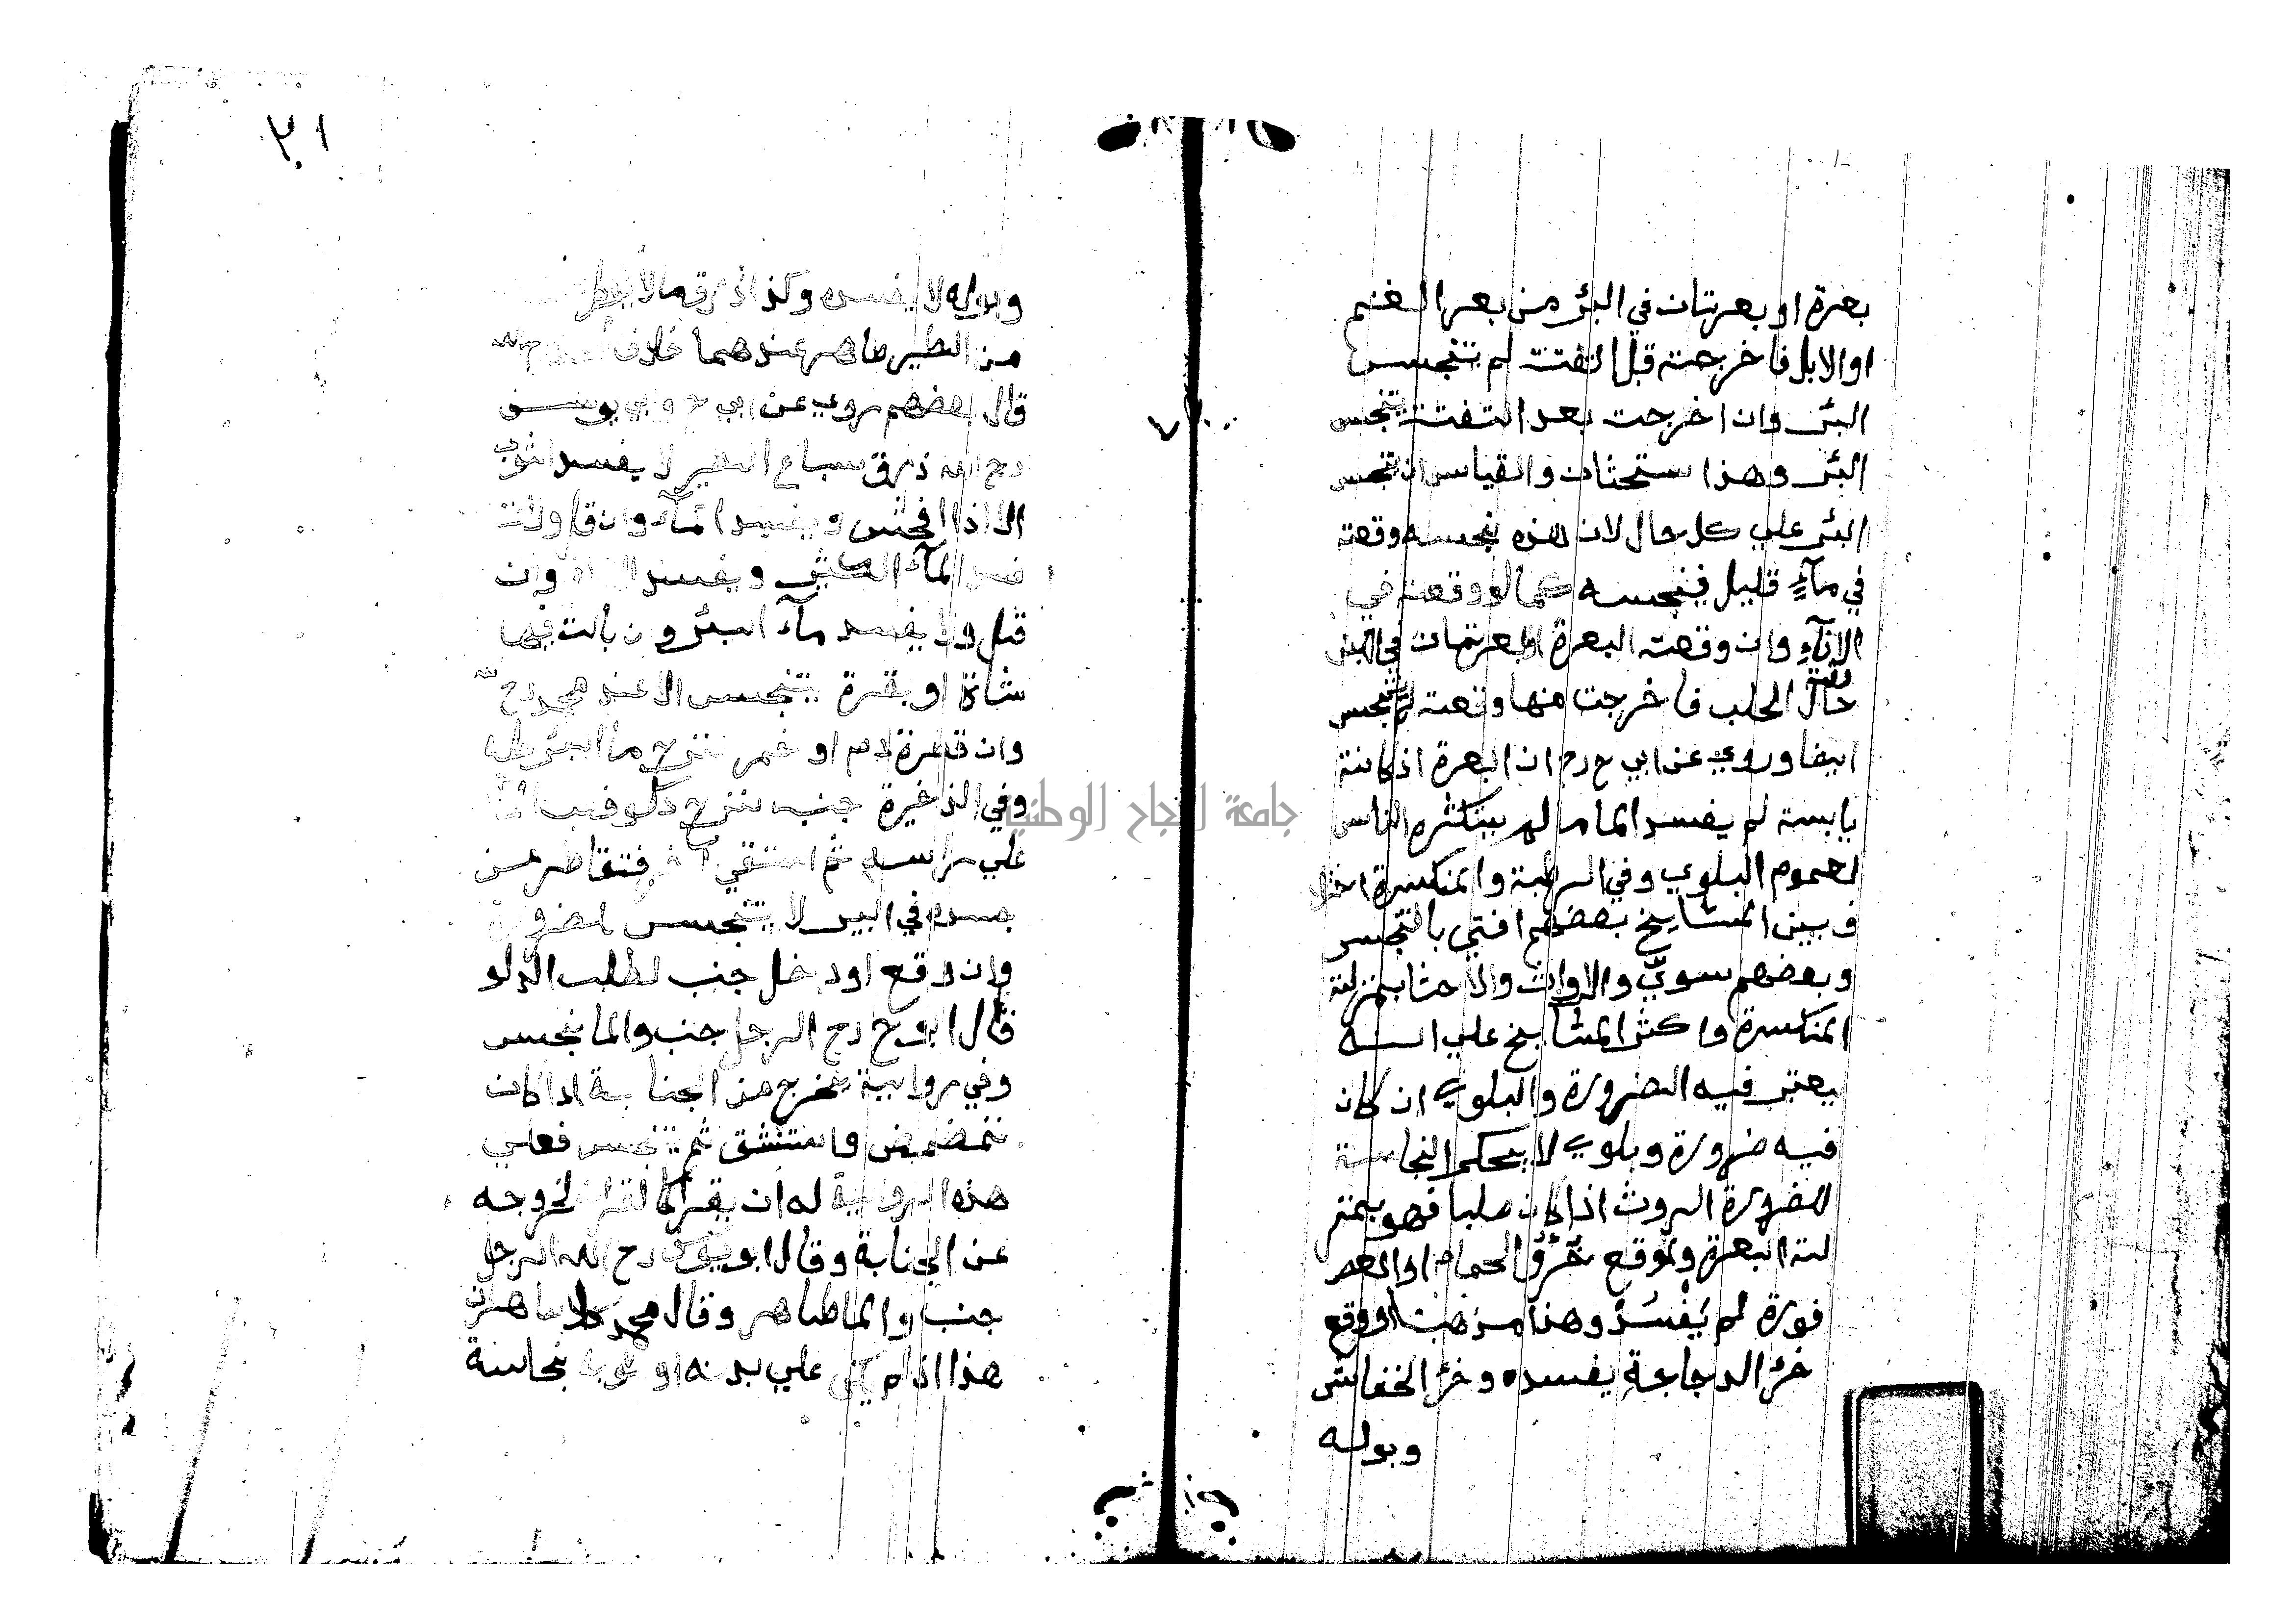 بعرة او بعرتان في البئر من بعر الغنم
او الابل فاخرجت قبل التفتت لم تتنجس
البئر وان اخرجت بعد التفتت تتنجس
البئر وهذا استحثان والقياس ان تتنجس
البئر علي كل حال لان هذه نجسه وقعت
في مآءٍ قليل فينجسه كما لو وقعت في
الانآءِ وان وقعت البعرة او بعرتان في اللبن
حال الحلب فاخرجت منها وقعت لم تتنجس
ايضا وروي عن ابي ح رح ان البعرة اذا كانت
يابسة لم يفسد الما مالم يستكثره الناس
لعموم البلوي وفي الرطبة والمنكسرة
وبين المشايخ بعضهم افتي بالتنجس
وبعضهم سويّ والارواث والاخثا بمنزلة
المنكسرة واكثر المشايخ علي انه
يعتبر فيه الضرورة والبلوي ان كان
فيه ضرورة وبلوي لا يحكم النجاسة
للضرورة الروث اذا كان صلبا فهو بمنز
لة البعرة ولو وقع خرؤ الحمام او العصـ
فورة لم يَفْسُدْ وهذا مذهبنا لو وقع
خرؤ الدجاجة يفسده وخرؤ الخفاش
وبوله
٣١
وبوله لا يفسده وكذا ذرق مالا يؤكل
من الطير طاهر عندهما خلافا
قال بعضهم روي عن ابي ح وابي يوسف
رح الله ذرق سباع الطير لا يفسد الثوب
الا اذا افحش ويفسد المآء وان قل ولا
يفسد المآء الكثير ويفسد وان
قل ولا يفسد مآء البئر وان بالت فيها
شاة او بقرة يتنجس الا عند محمد رح
وان قطرة دم او خمر نزح ما البئر كله
وفي الذخيرة جنب نزح دلو فصب
علي راسه ثم استقي فتقاطر من
جسده في البير لا يتنجس للضرورة
وان وقع او دخل جنب لطلب الدلو
قال ابو ح رح الرجل جنب والما نجس
وفي رواية يخرج من الجنابة اذا كان
تمضمض واستنشق ثم تنجس فعلي
هذه الرواية له ان يقرأ القرآن لخروجه
عن الجنابة وقال ابو يوسف رح الله الرجل
جنب والما طاهر وقال محمد طاهران
هذا اذا لم يكن علي بدنه او ثوبه نجاسة
جامعة النجاح الوطنية